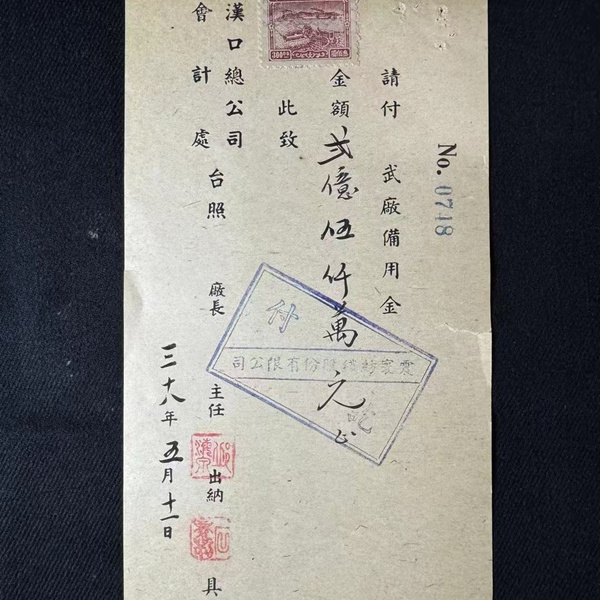 No. 0748
請付 武廠備用金
金額 弍億伍仟萬元正
此致
漢口總公司
會計處 台照
廠長 主任 出納 具
三十八年五月十一日
付訖
震寰紗織股份有限公司